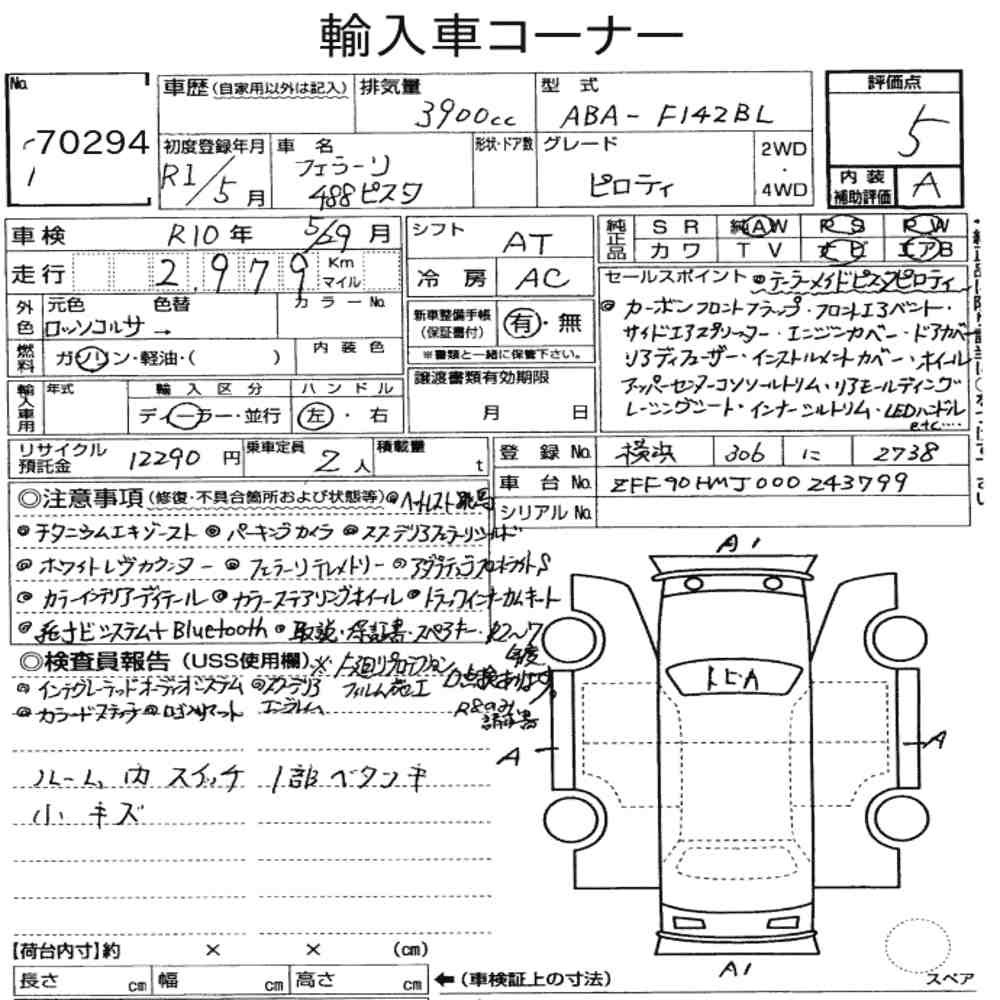 輸入車コーナー
No. 70294
車歴 (自家用以外は記入)
排気量 3900cc
型式 ABA-F142BL
評価点 5
内装補助評価 A
初度登録年月 R1/5月
車名 フェラーリ 488ピスタ
形状・ドア数
グレード ピロティ
2WD ・ 4WD
車検 R10年 5/29月
走行 2,979 Km マイル
シフト AT
冷房 AC
純正品 SR 純AW RS RW
カワ TV ナビ エアB
外色 元色 色替 カラーNo.
ロッソコルサ →
燃料 ガソリン・軽油・( )
内装色
新車整備手帳(保証書付) 有・無
※書類と一緒に保管下さい。
セールスポイント ◎テーラーメイドピスタピロティ
◎カーボンフロントフラップ・フロントエアベント・
サイドエアスプリッター・エンジンカバー・ドアカバー
リアディフューザー・インストルメントカバー・ホイール
アッパーセンターコンソールトリム・リアモールディング
レーシングシート・インナーシルトリム・LEDハンドル
etc…
輸入車用 年式
輸入区分 ディーラー・並行
ハンドル 左・右
譲渡書類有効期限 月 日
リサイクル預託金 12290円
乗車定員 2人
積載量 t
登録No. 横浜 306 に 2738
車台No. ZFF90HMJ000243799
シリアルNo.
◎注意事項(修復・不具合箇所および状態等) ◎ヘッドレスト跳馬
◎チタニウムエキゾースト ◎パーキングカメラ ◎スクーデリアフェラーリシールド
◎ホワイトレヴカウンター ◎フェラーリテレメトリー ◎アダプティブフロントライトS
◎カラーインテリアディテール ◎カラーステアリングホイール ◎トラックインナーカムキート
◎純ナビシステム+Bluetooth ◎取説・保証書・スペアキー・R2〜7
◎検査員報告(USS使用欄) ※下廻りプロテクション 年度
フィルム施工 点検あります。
◎インテグレーテッドオーディオシステム ◎スクーデリア
エンブレム R8のみ請求書
◎カラードステッチ ◎ロゴ入りマット
ルーム内スイッチ 1部ベタツキ
小キズ
A1
トビA
A
A
A1
【荷台内寸】約 × × (cm)
長さ cm 幅 cm 高さ cm
←(車検証上の寸法)
スペア